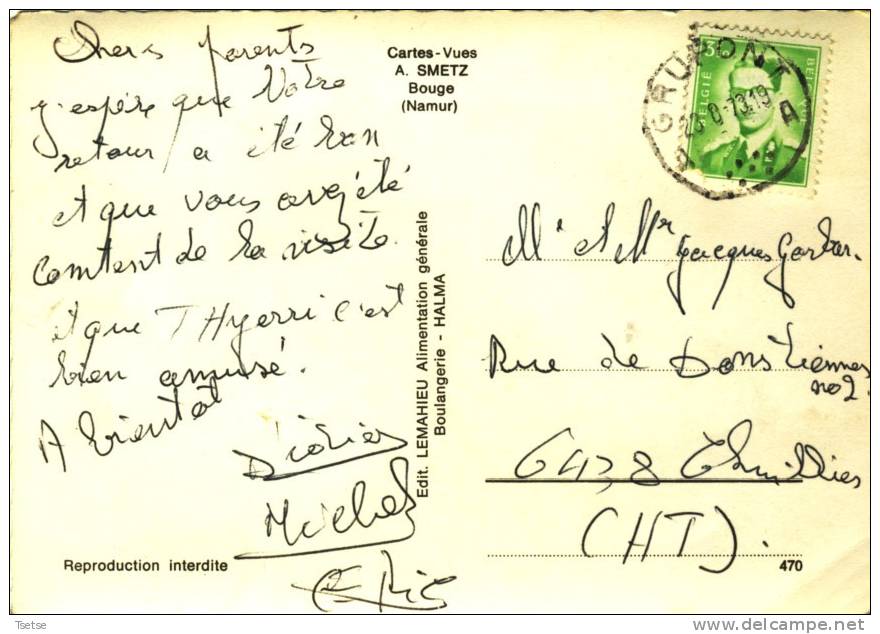 Chers parents
j'espère que Votre
retour a été bon
et que vous avez été
content de la visite.
et que THyerri c'est
bien amusé.
A bientôt
Didier
Michel
Eric
Cartes-Vues
A. SMETZ
Bouge
(Namur)
Edit. LEMAHIEU Alimentation générale
Boulangerie - HALMA
GRUPONT
23-8-73.19
A
BELGIE
BELGIQUE
Mr et Mr Jacques
Rue de Donstiennes
no 2.
6438 Thuillies
(HT).
Reproduction interdite
470
Tsetse
delcampe.net